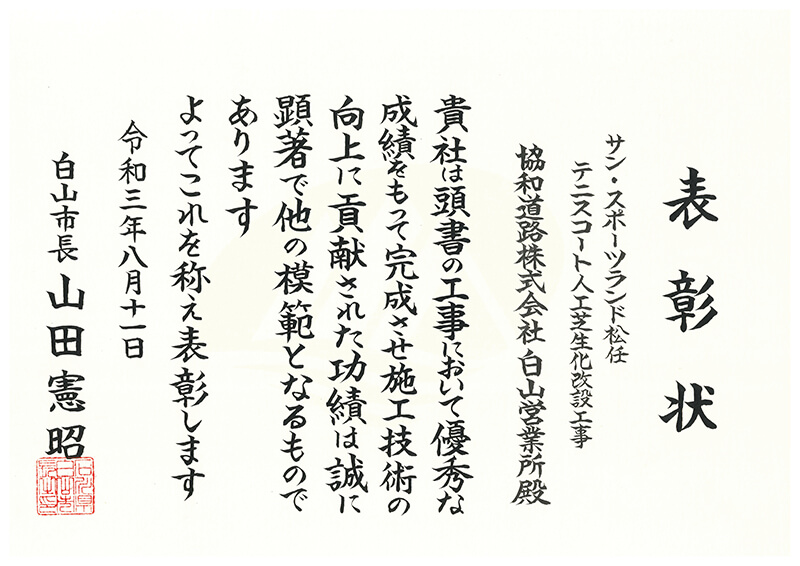 表彰状
サン・スポーツランド松任
テニスコート人工芝生化改設工事
協和道路株式会社 白山営業所殿
貴社は頭書の工事において優秀な
成績をもって完成させ施工技術の
向上に貢献された功績は誠に
顕著で他の模範となるもので
あります
よってこれを称え表彰します
令和三年八月十一日
白山市長 山田憲昭